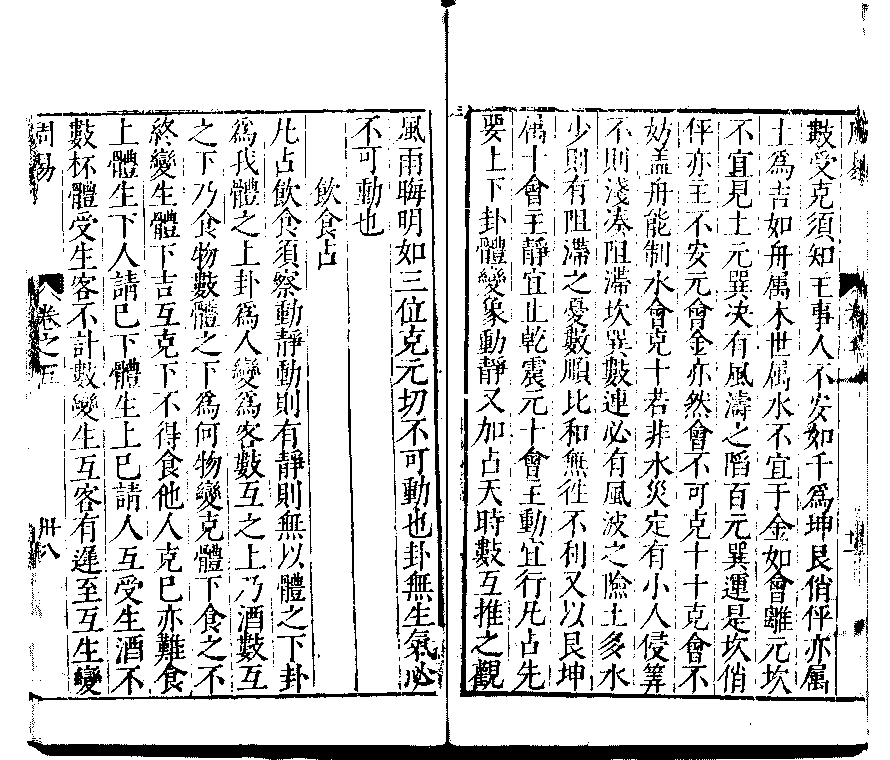 數受克須知主事人不安如千爲坤艮俏伻亦属
土爲吉如舟属木世属水不宜于金如會離元坎
不宜見土元巽决有風濤之陷百元巽運是坎俏
伻亦主不安元會金亦然會不可克十十克會不
妨盖舟能制水會克十若非水災定有小人侵筭
不則淺凑阻滯坎巽數連必有風波之險土多水
少則有阻滯之憂數順比和無徃不利又以艮坤
属十會主靜宜止乾震元十會主動宜行凡占先
要上下卦體變象動靜又加占天時數互推之觀
風雨晦明如三位克元切不可動也卦無生氣必
不可動也
飲食占
凡占飲食須察動靜動則有靜則無以體之下卦
爲我體之上卦爲人變爲客數互之上乃酒數互
之下乃食物數體之下爲何物變克體下食之不
終變生體下吉互克下不得食他人克巳亦難食
上體生下人請巳下體生上巳請人互受生酒不
數杯體受生客不計數變生互客有遲至互生變
周易
卷之五
卌八